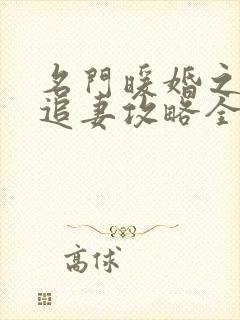 名門暖婚之
追妻攻略全
高球